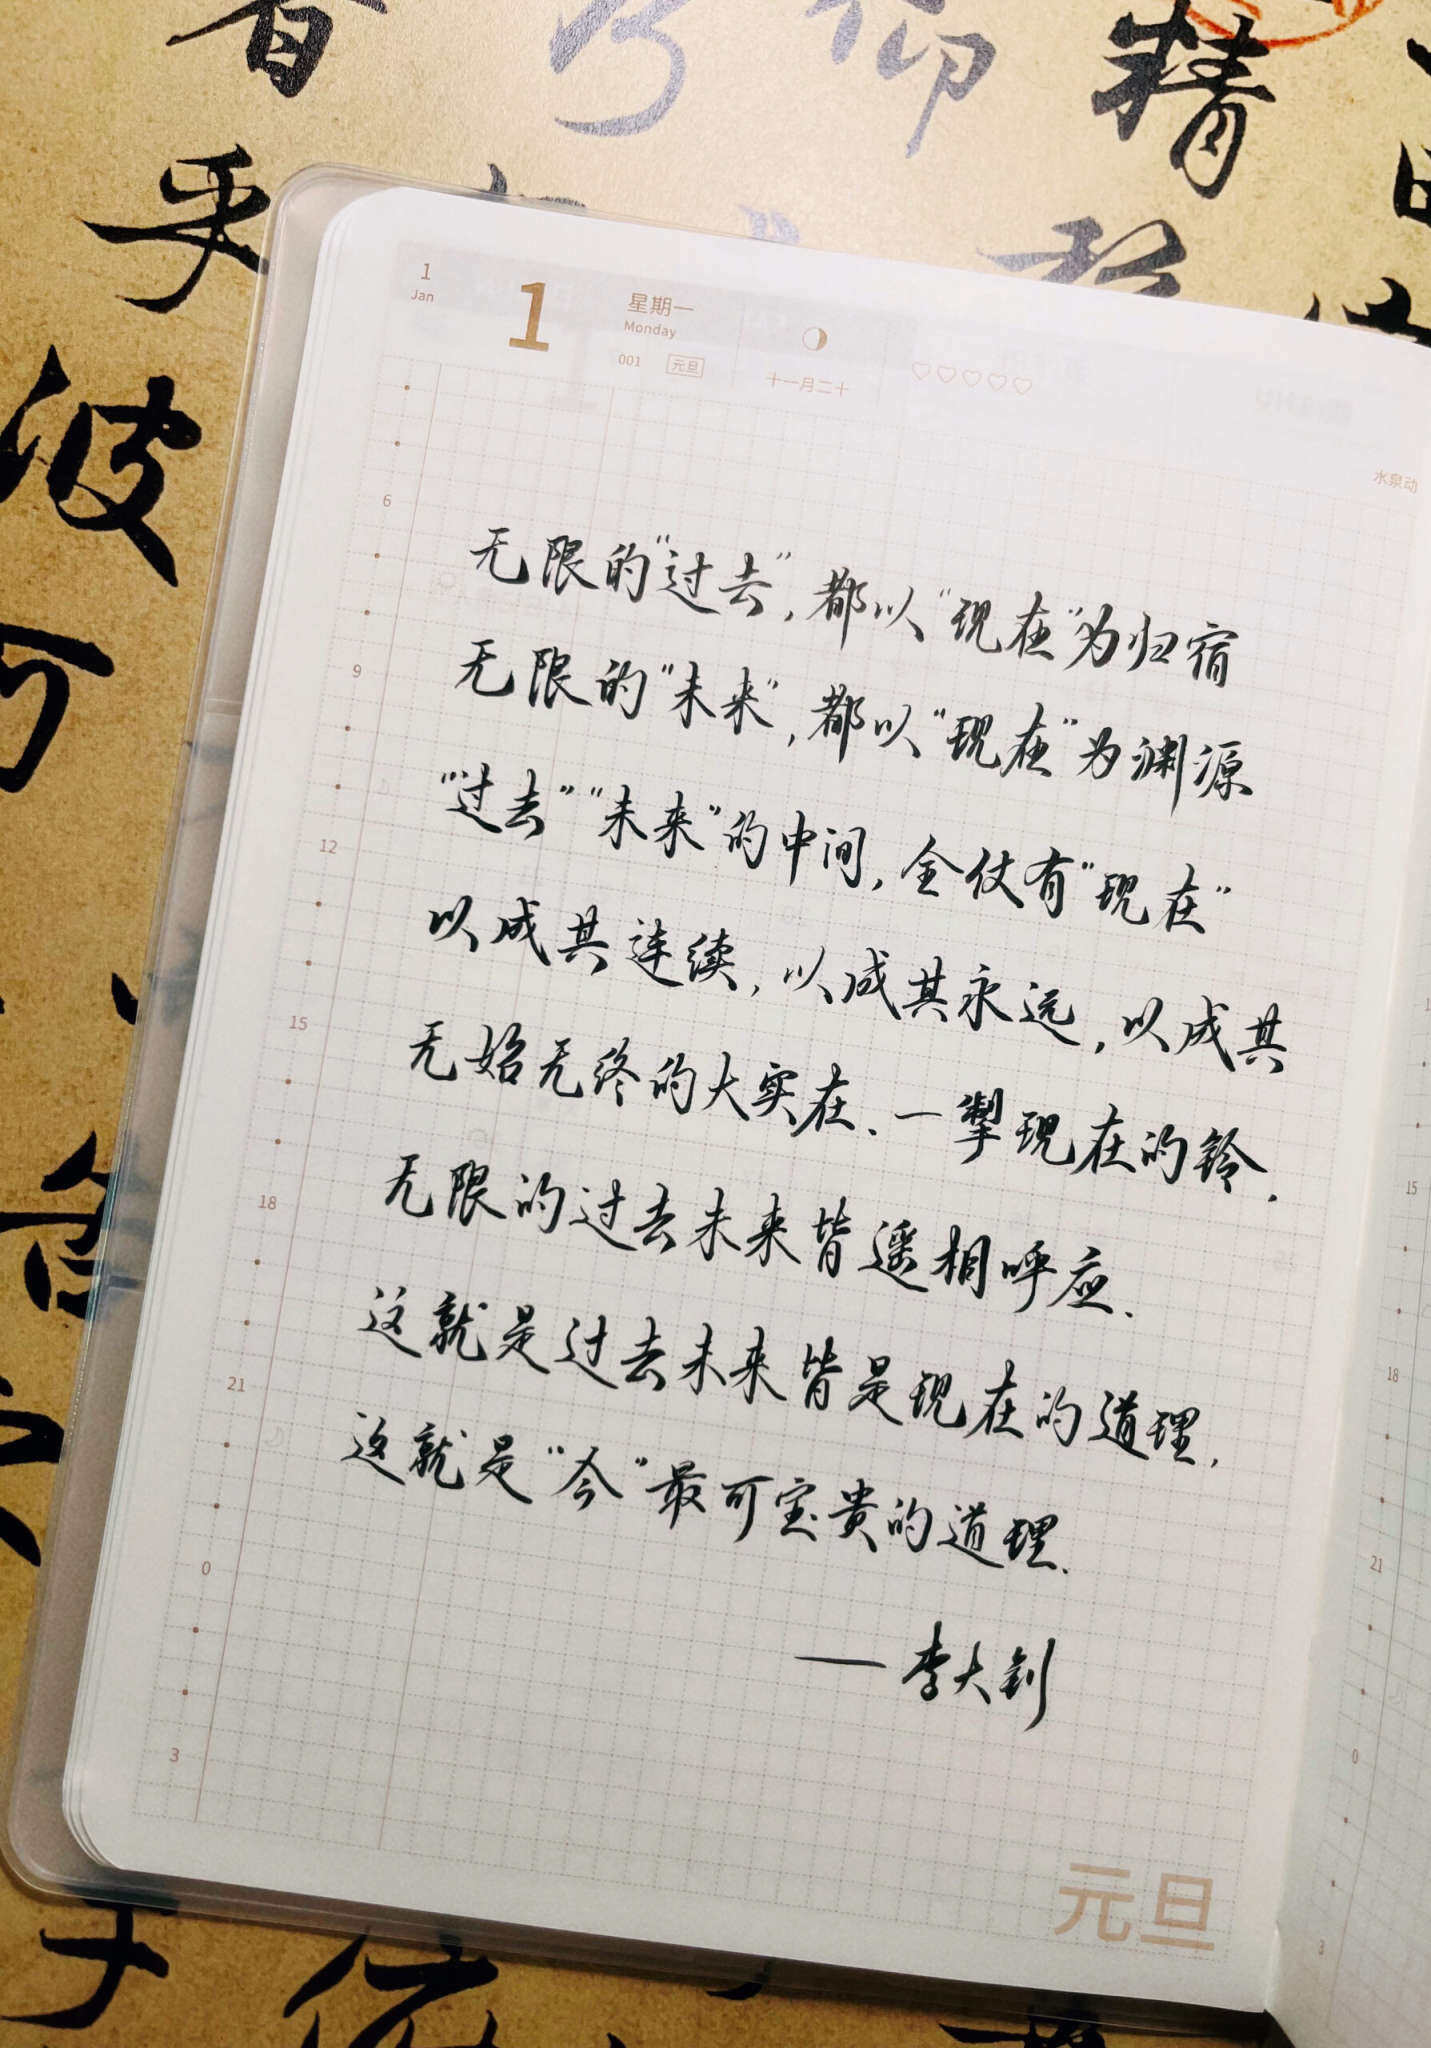 1
Jan
1
星期一
Monday
001 元旦
十一月二十
水泉动
无限的“过去”，都以“现在”为归宿
无限的“未来”，都以“现在”为渊源
“过去”“未来”的中间，全仗有“现在”
以成其连续，以成其永远，以成其
无始无终的大实在.一掣现在的铃，
无限的过去未来皆遥相呼应.
这就是过去未来皆是现在的道理，
这就是“今”最可宝贵的道理.
——李大钊
6
9
12
15
18
21
0
3
元旦
15
18
21
0
3
精
乎
波
可